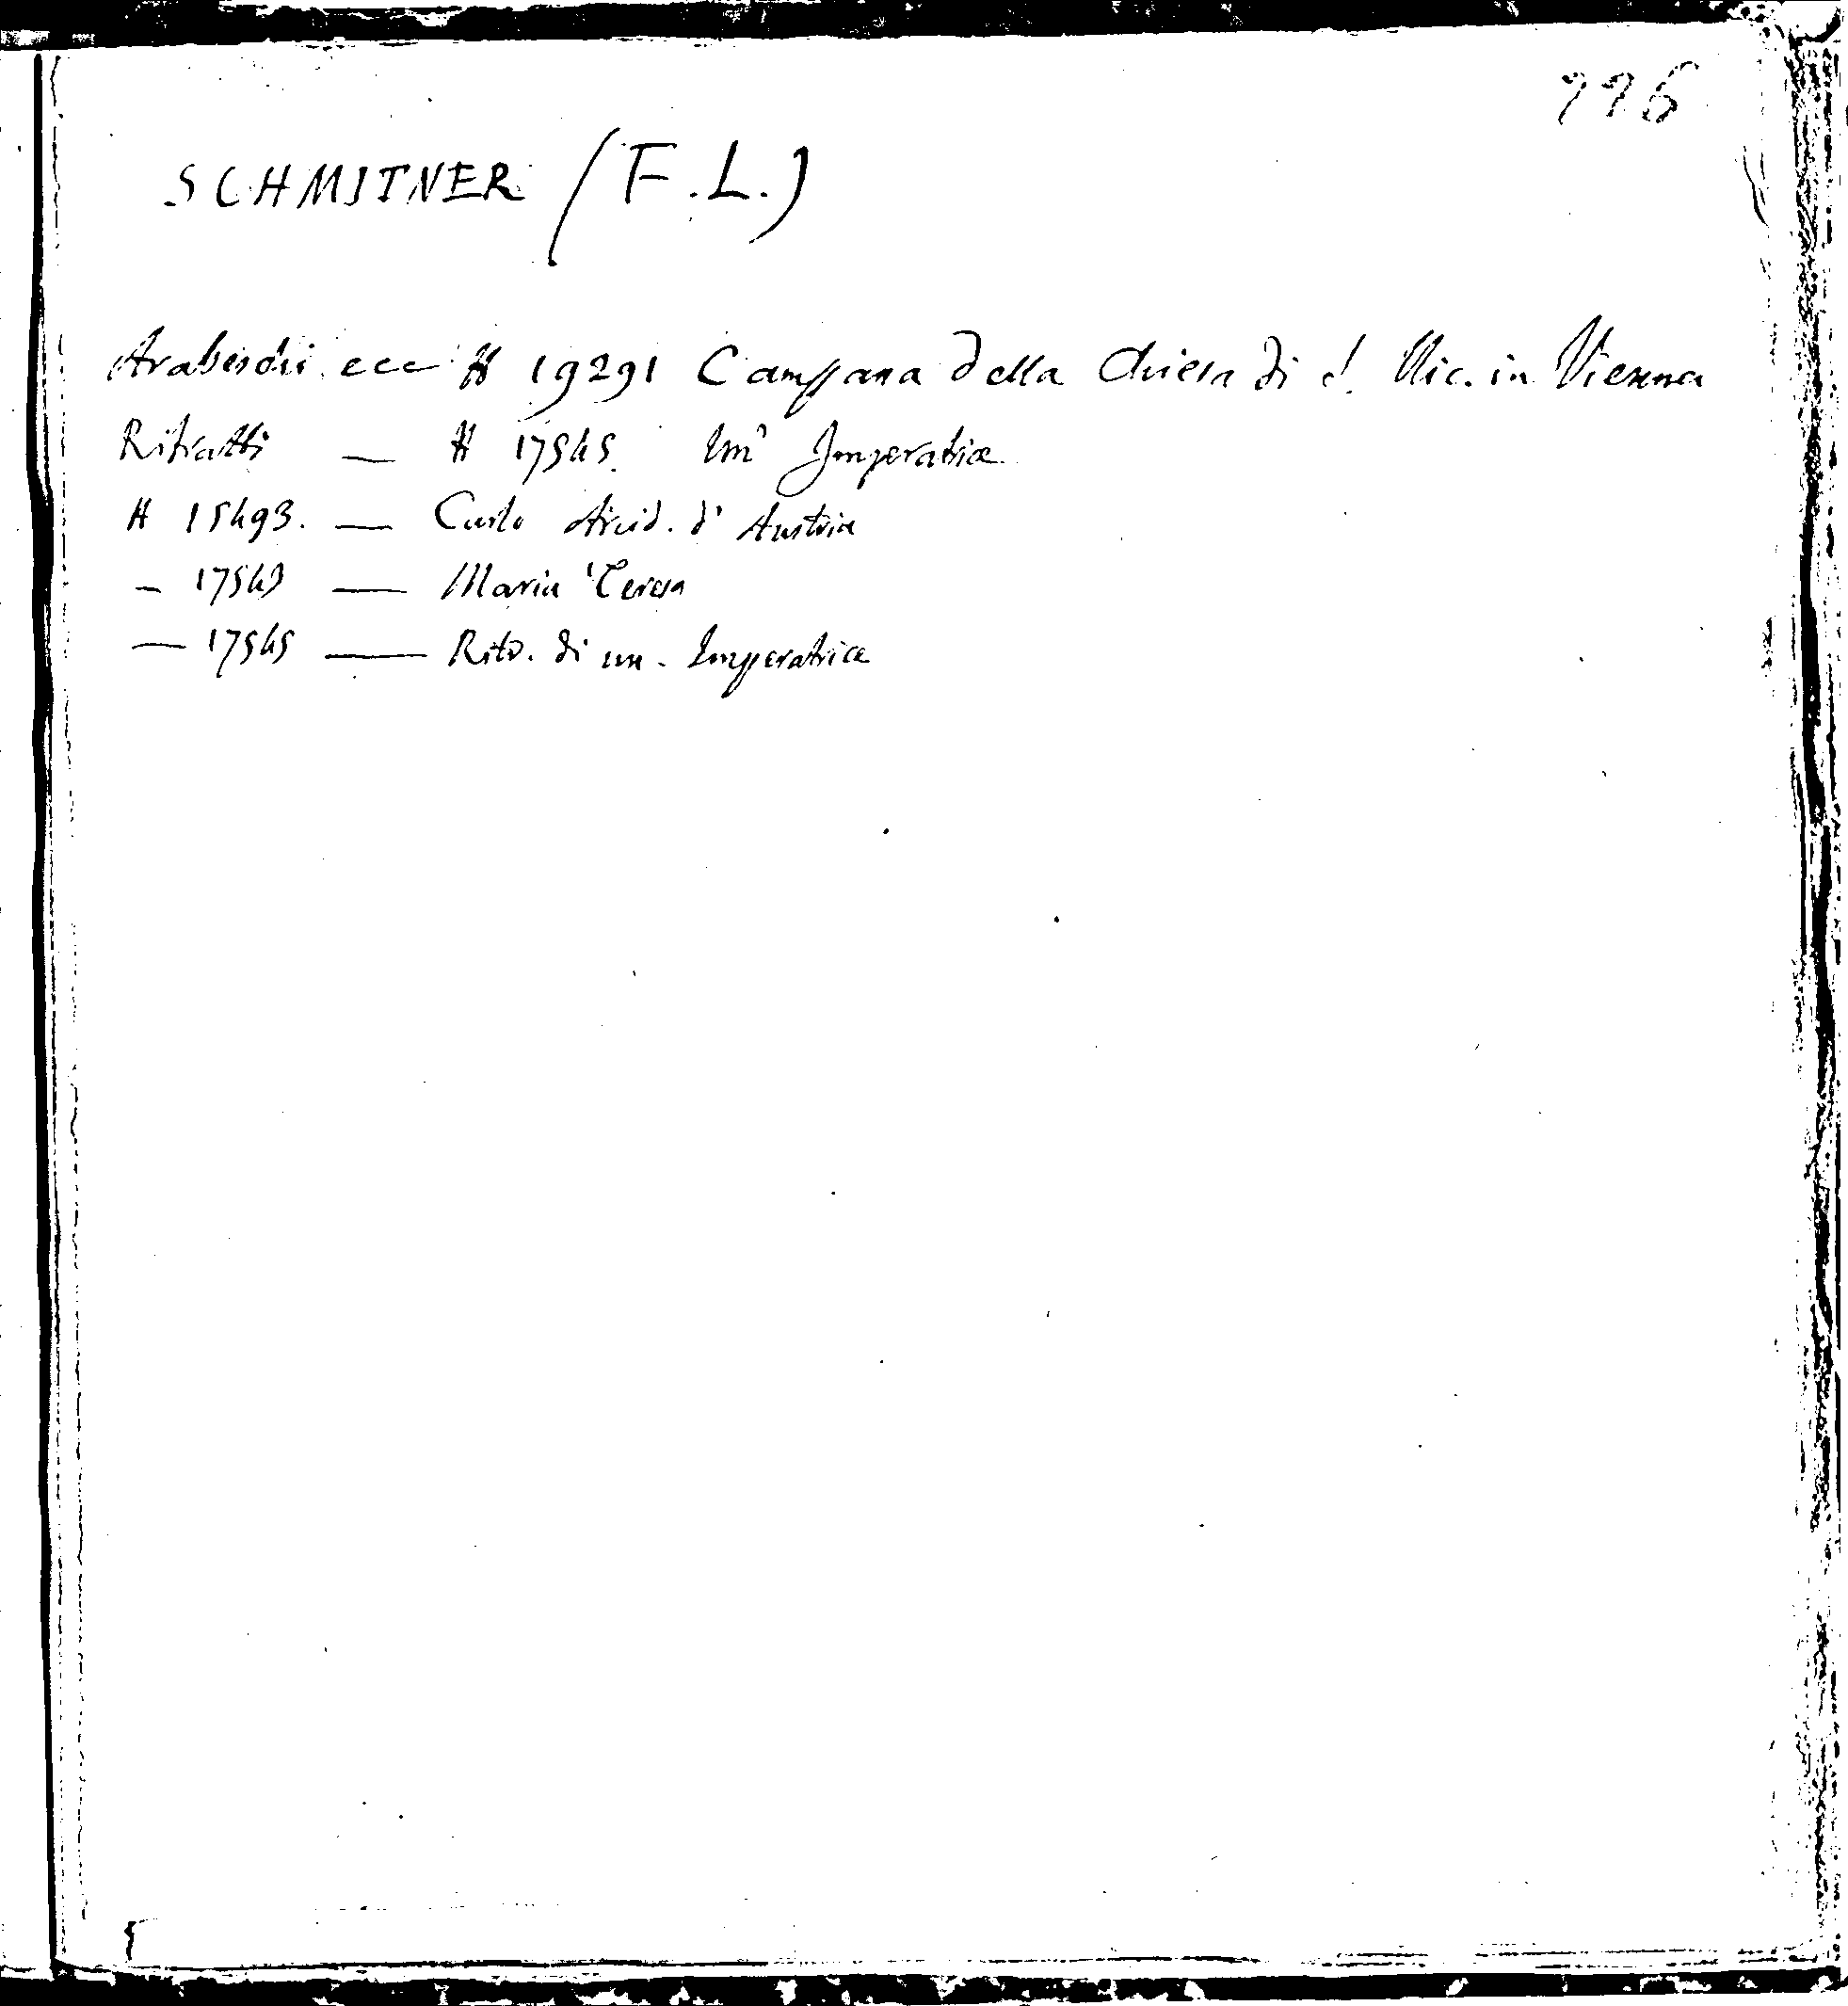 776
SCHMITNER (F.L.)
Arabeschi ecc H 19291 Campana della Chiesa di S. Nic. in Vienna
Ritratti — H 17545. Un' Imperatrice
H 15493. — Carlo Arcid. d' Austria
— 17543 — Maria Teresa
— 17545 — Ritr. di un. Imperatrice